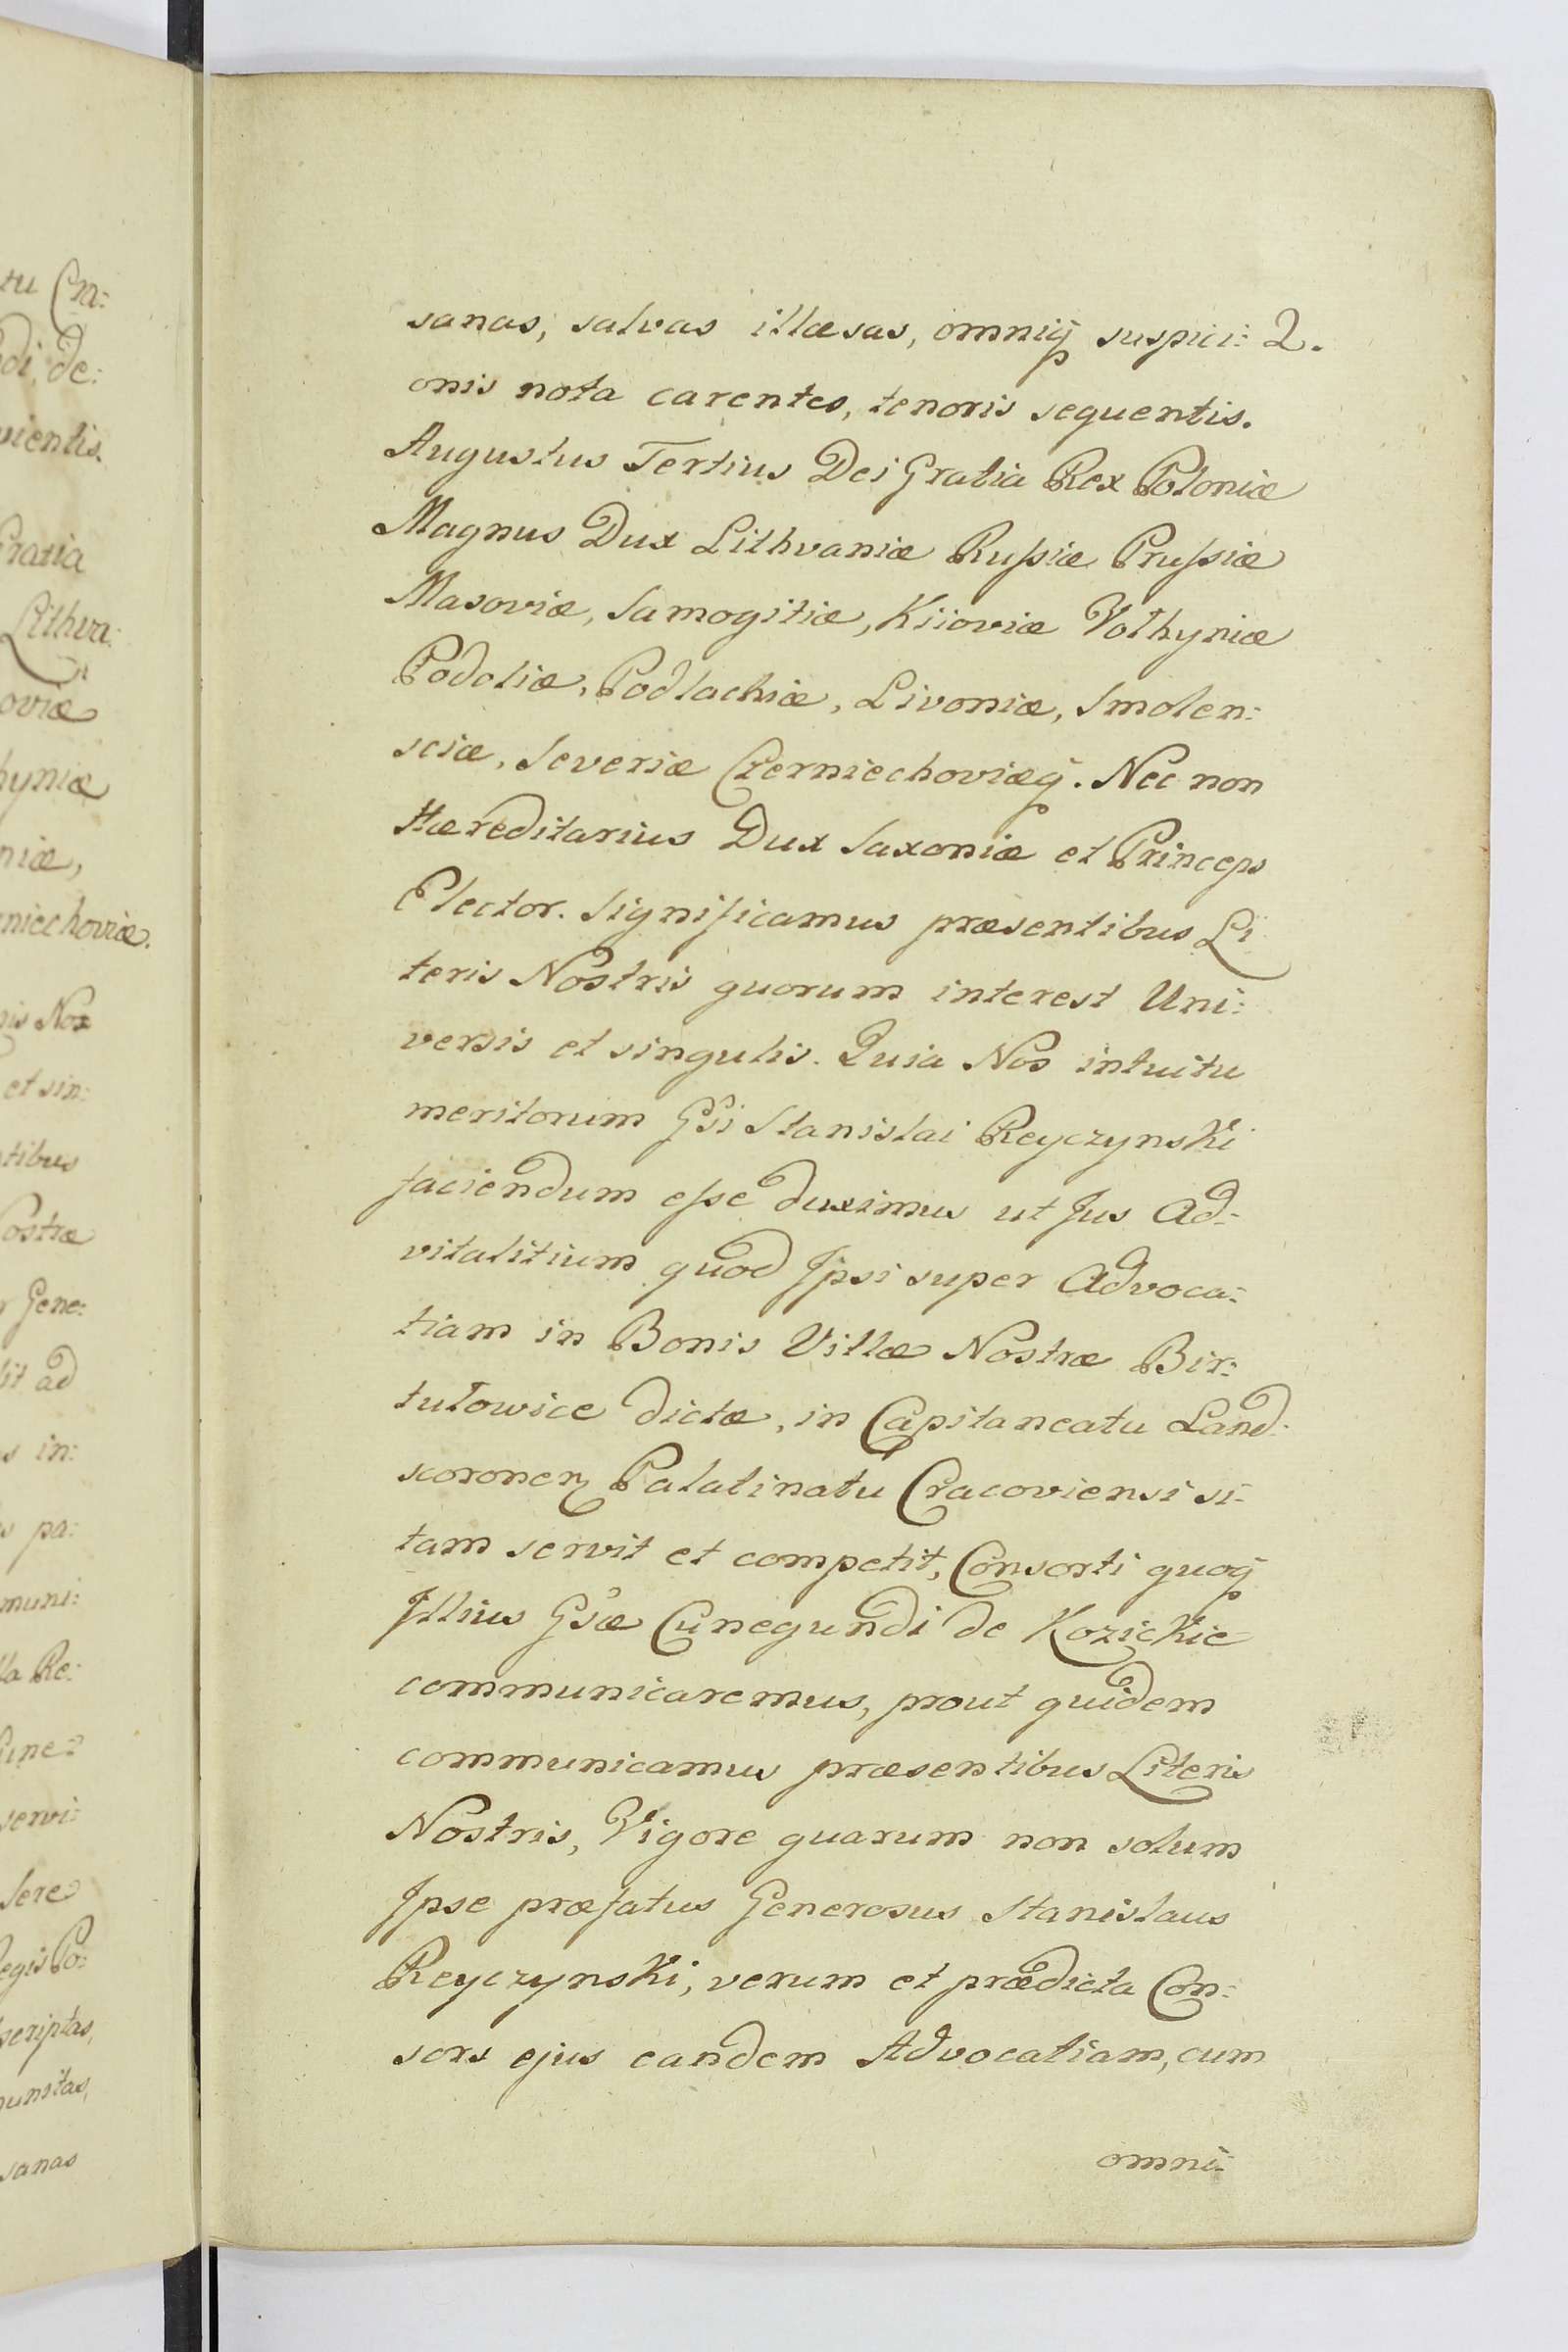 tu Cra:
di de:
vientis.
Gratia
Lithva:
oviæ
hyniæ
niæ,
niechoviæ.
is Nos
et sin:
tibus
ostræ
r Gene:
lit ad
s in:
s pa:
muni:
la Re:
Cune:
servi:
Sere
Regis Po:
scriptas,
munitas,
sanas
sanas, salvas illæsas, omniq̃ suspici: 2.
onis nota carentes, tenoris sequentis.
Augustus Tertius Dei Gratia Rex Poloniæ
Magnus Dux Lithvaniæ Ruſsiæ Pruſsiæ
Masoviæ, Samogitiæ, Kijoviæ Volhyniæ
Podoliæ, Podlachiæ, Livoniæ, Smolen:
sciæ, Severiæ Czerniechoviæq̃. Nec non
Hæreditarius Dux Saxoniæ et Princeps
Elector. Significamus præsentibus Li
teris Nostris quorum interest Uni:
versis et singulis. Quia Nos intuitu
meritorum Gsi Stanislai Reyczynski
faciendum eſse duximus ut Jus Ad:
vitalitium quod Ipsi super Advoca:
tiam in Bonis Villæ Nostræ Bir:
tułowice dictæ, in Capitaneatu Land:
scoronen Palatinatu Cracoviensi si:
tam servit et competit, Consorti quoq̃
Illius Gsæ Cunegundi de Kozickie
communicaremus, prout quidem
communicamus præsentibus Literis
Nostris, Vigore quarum non solum
Ipse præfatus Generosus Stanislaus
Reyczynski, verum et prædicta Con:
sors ejus eandem Advocatiam, cum
omni: